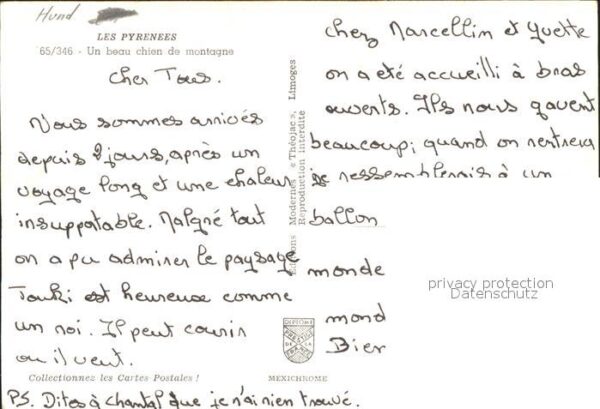 Hund
LES PYRENEES
65/346 - Un beau chien de montagne
Cher Tous.
Nous sommes arrivés
depuis 2 jours, après un
voyage long et une chaleur
insupportable. Malgré tout
on a pu admirer le paysage
Touki est heureuse comme
un roi. Il peut courir
ou il veut.
Collectionnez les Cartes Postales !
P.S. Dites à Chantal que je n'ai rien trouvé.
Editions Modernes « Théojac », Limoges
Reproduction interdite
DIPLOME
PRESTIGE DE LA FRANCE
MEXICHROME
chez Marcellin et Yvette
on a été accueilli à bras
ouverts. Ils nous gavent
beaucoup; quand on rentrera
je ressemblerais à un
ballon
monde
mond
Bier
privacy protection
Datenschutz